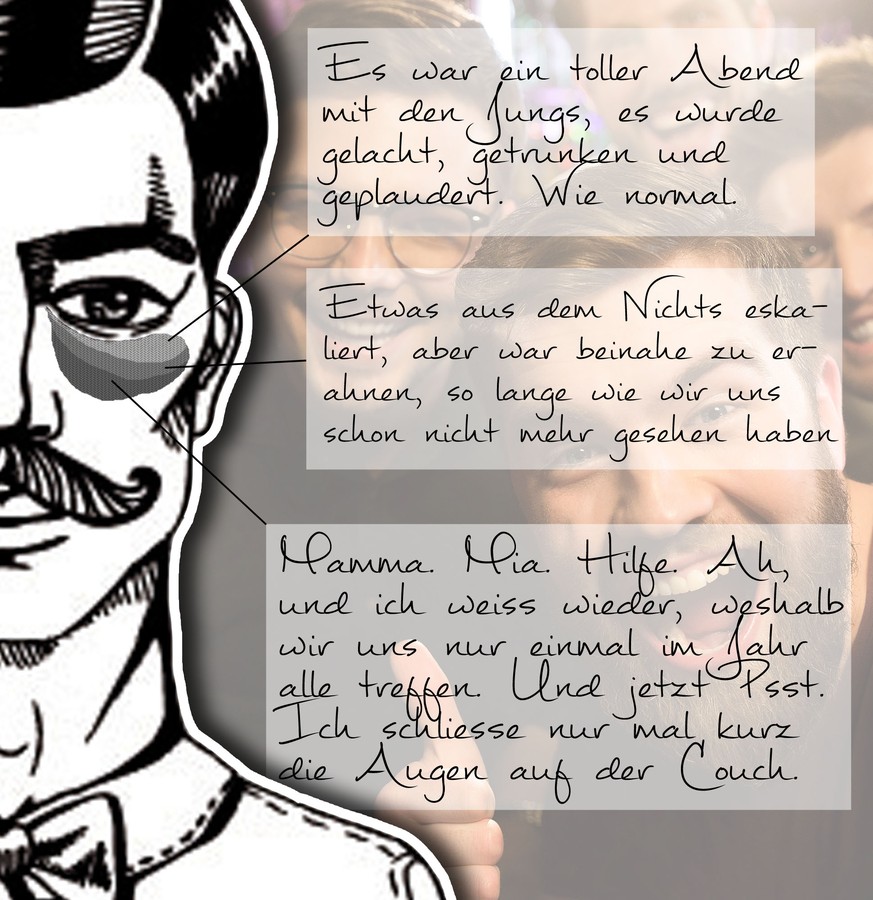 Es war ein toller Abend
mit den Jungs, es wurde
gelacht, getrunken und
geplaudert. Wie normal.
Etwas aus dem Nichts eska-
liert, aber war beinahe zu er-
ahnen, so lange wie wir uns
schon nicht mehr gesehen haben
Mamma. Mia. Hilfe. Ah,
und ich weiss wieder, weshalb
wir uns nur einmal im Jahr
alle treffen. Und jetzt Psst.
Ich schliesse nur mal kurz
die Augen auf der Couch.